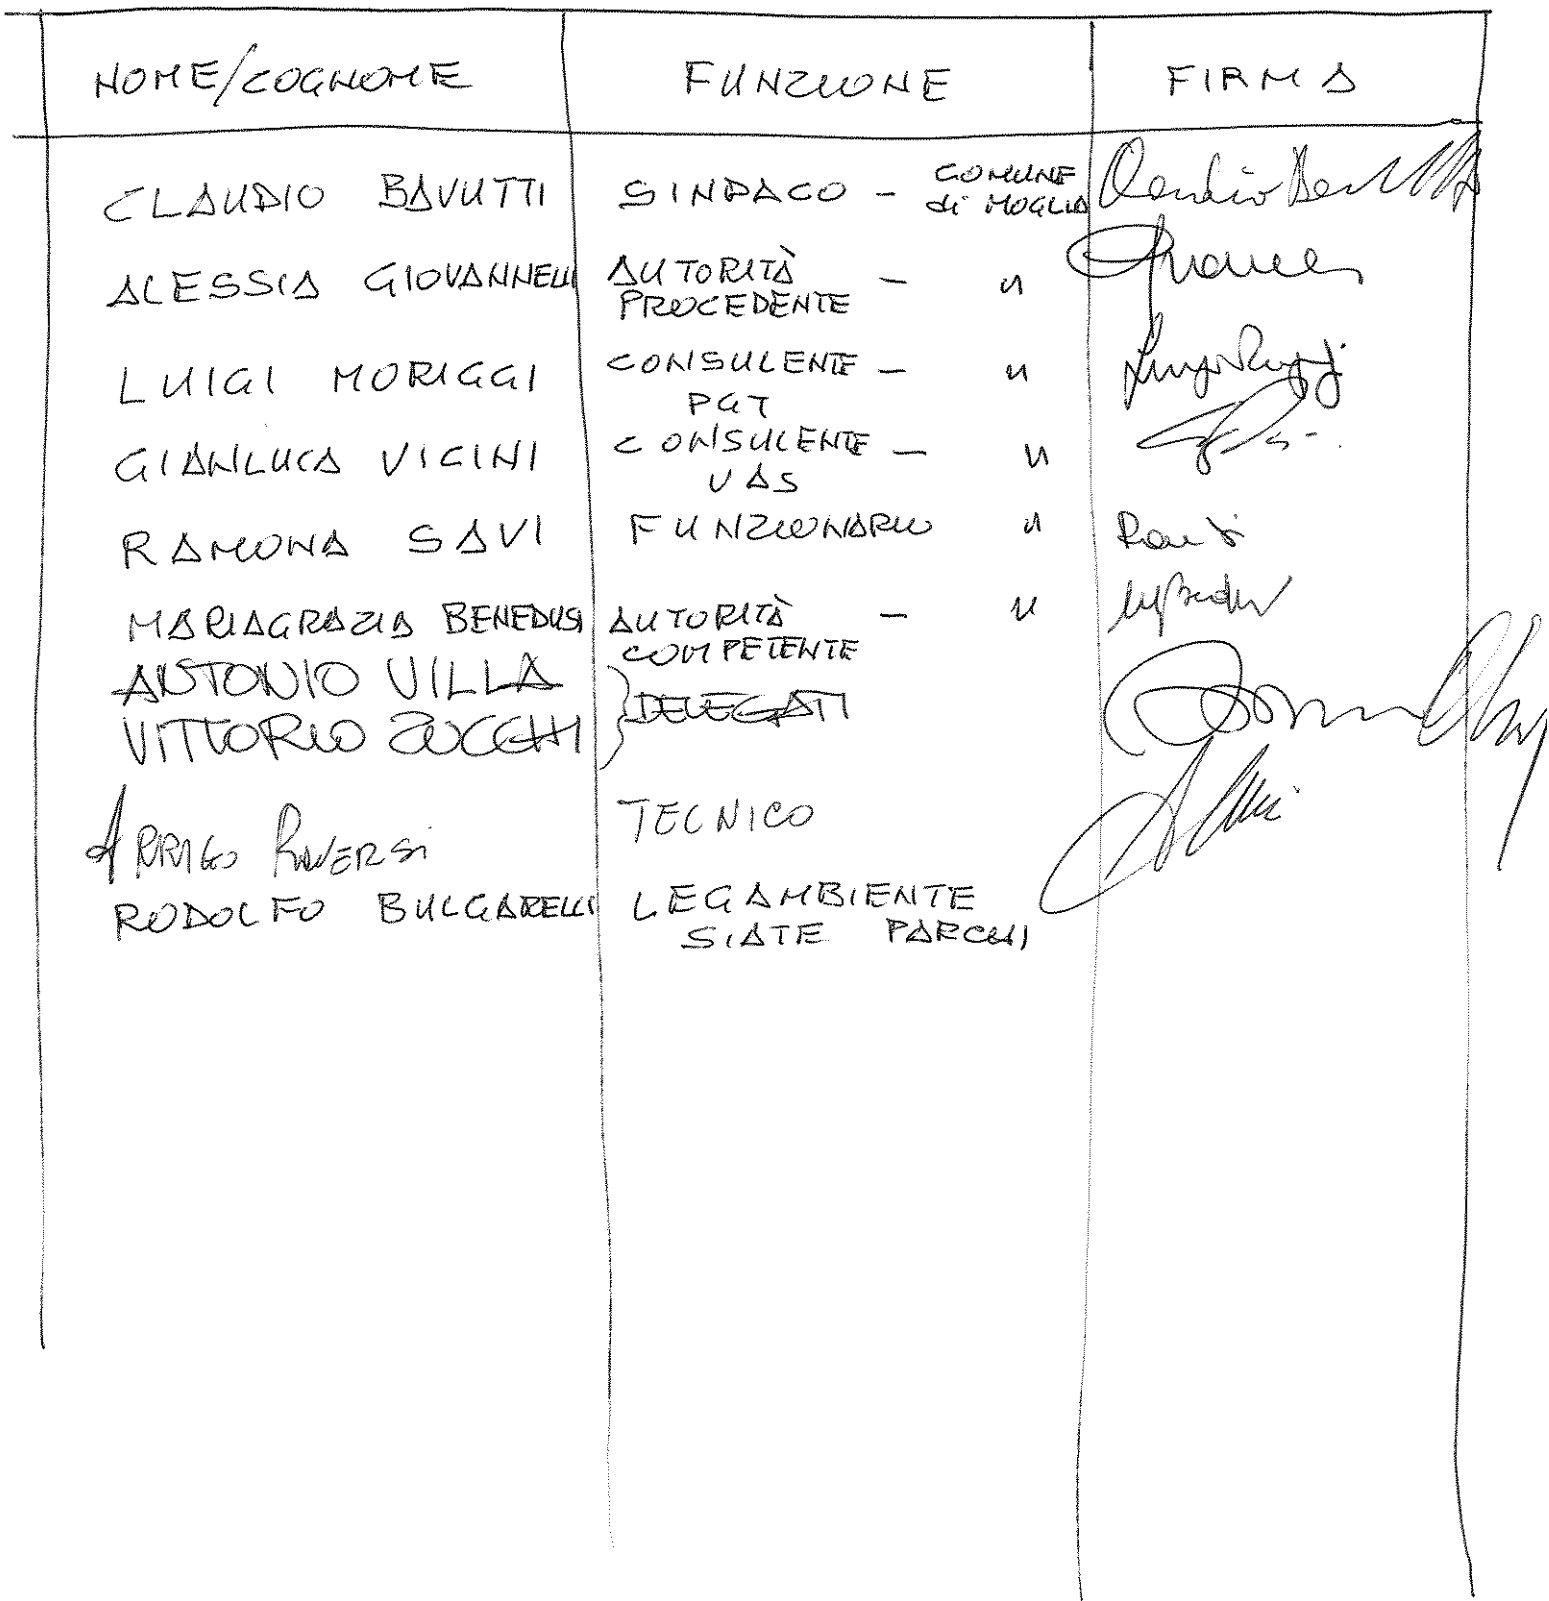 NOME/COGNOME FUNZIONE FIRMA
CLAUDIO BAVUTTI SINDACO - COMUNE
di MOGLIA
ALESSIA GIOVANNELLI AUTORITÀ - "
PROCEDENTE
LUIGI MORIGGI CONSULENTE - "
PGT
GIANLUCA VICINI CONSULENTE - "
VAS
RAMONA SAVI FUNZIONARIO "
MARIAGRAZIA BENEDUSI AUTORITÀ - "
COMPETENTE
ANTONIO VILLA
VITTORIO ZUCCHI } DELEGATI
ARRIGO RAVERSI TECNICO
RODOLFO BULGARELLI LEGAMBIENTE
SIATE PARCHI